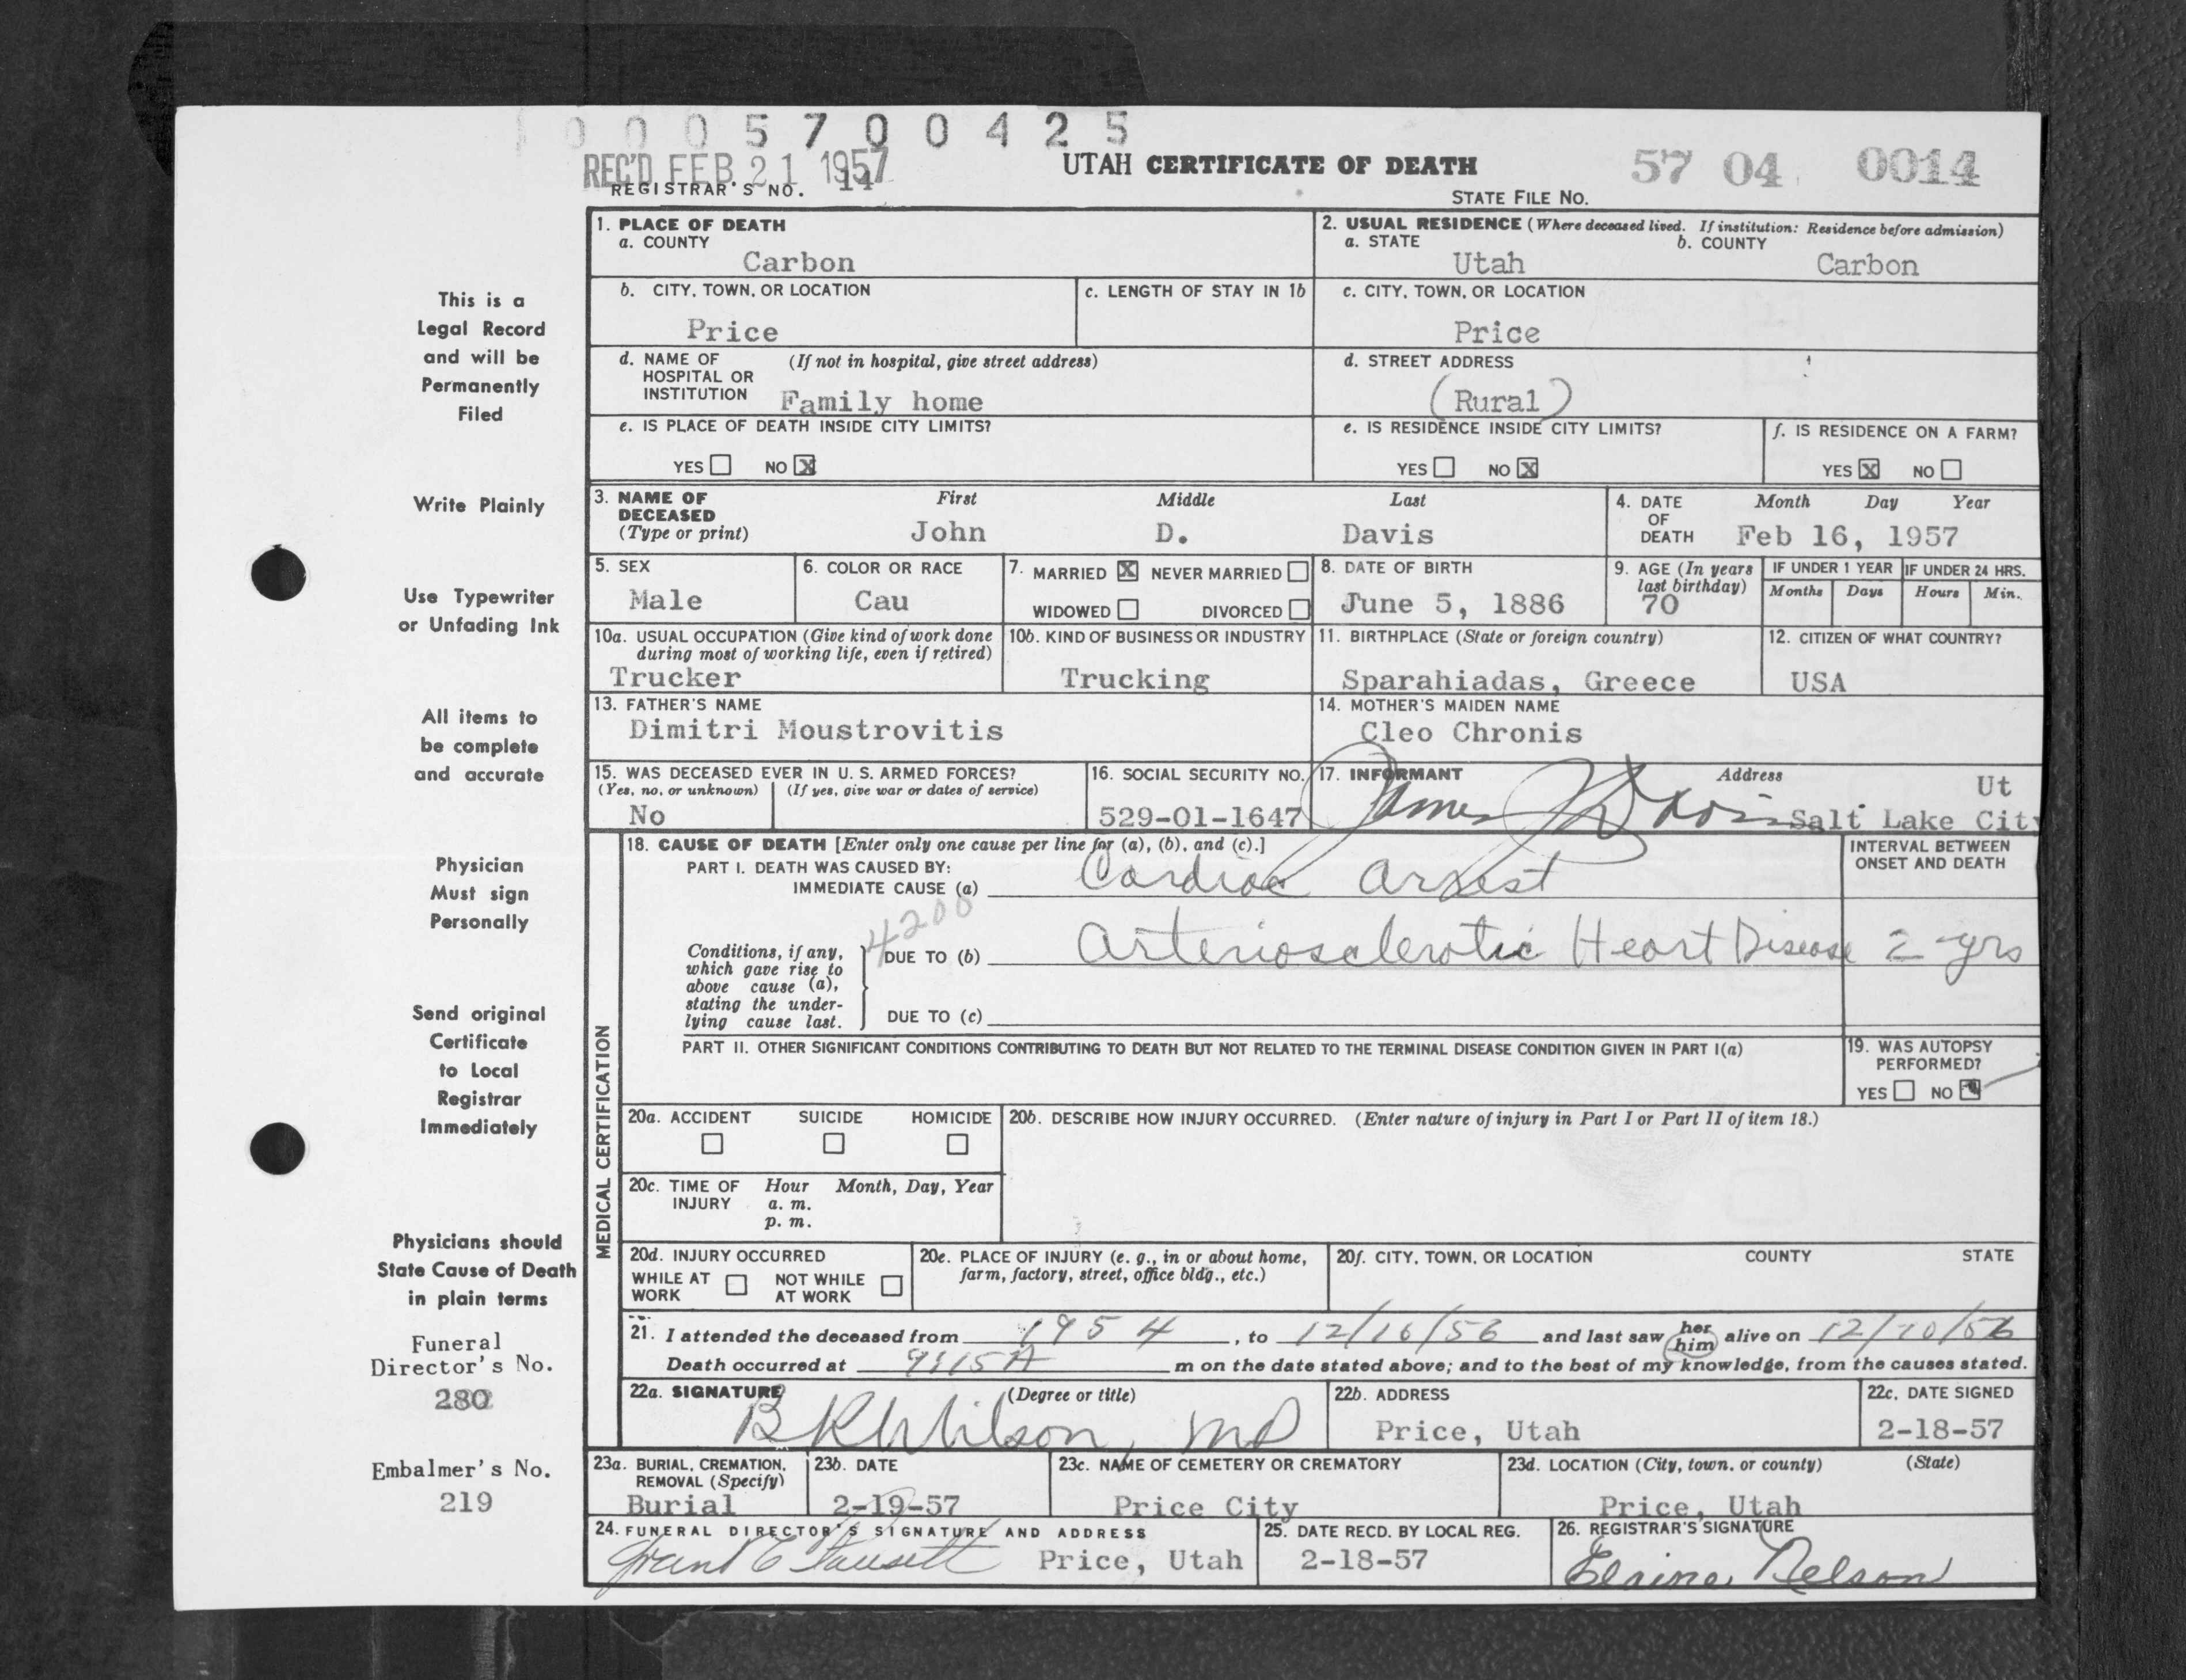 0005700425
REC'D FEB 21 1957
UTAH CERTIFICATE OF DEATH
57 04 0014
REGISTRAR'S NO. 14
STATE FILE NO.
This is a
Legal Record
and will be
Permanently
Filed
Write Plainly
Use Typewriter
or Unfading Ink
All items to
be complete
and accurate
Physician
Must sign
Personally
Send original
Certificate
to Local
Registrar
Immediately
Physicians should
State Cause of Death
in plain terms
Funeral
Director's No.
280
Embalmer's No.
219
1. PLACE OF DEATH
a. COUNTY
Carbon
2. USUAL RESIDENCE (Where deceased lived. If institution: Residence before admission)
a. STATE
Utah
b. COUNTY
Carbon
b. CITY, TOWN, OR LOCATION
Price
c. LENGTH OF STAY IN 1b
c. CITY, TOWN, OR LOCATION
Price
d. NAME OF HOSPITAL OR INSTITUTION (If not in hospital, give street address)
Family home
d. STREET ADDRESS
(Rural)
e. IS PLACE OF DEATH INSIDE CITY LIMITS?
YES NO X
e. IS RESIDENCE INSIDE CITY LIMITS?
YES NO X
f. IS RESIDENCE ON A FARM?
YES X NO
3. NAME OF DECEASED (Type or print)
First Middle Last
John D. Davis
4. DATE OF DEATH
Month Day Year
Feb 16, 1957
5. SEX
Male
6. COLOR OR RACE
Cau
7. MARRIED X NEVER MARRIED
WIDOWED DIVORCED
8. DATE OF BIRTH
June 5, 1886
9. AGE (In years last birthday)
70
IF UNDER 1 YEAR
Months Days
IF UNDER 24 HRS.
Hours Min.
10a. USUAL OCCUPATION (Give kind of work done
during most of working life, even if retired)
Trucker
10b. KIND OF BUSINESS OR INDUSTRY
Trucking
11. BIRTHPLACE (State or foreign country)
Sparahiadas, Greece
12. CITIZEN OF WHAT COUNTRY?
USA
13. FATHER'S NAME
Dimitri Moustrovitis
14. MOTHER'S MAIDEN NAME
Cleo Chronis
15. WAS DECEASED EVER IN U. S. ARMED FORCES?
(Yes, no, or unknown) (If yes, give war or dates of service)
No
16. SOCIAL SECURITY NO.
529-01-1647
17. INFORMANT Address
James Davis Salt Lake City Ut
18. CAUSE OF DEATH [Enter only one cause per line for (a), (b), and (c).]
PART I. DEATH WAS CAUSED BY:
IMMEDIATE CAUSE (a) Cardiac arrest
INTERVAL BETWEEN
ONSET AND DEATH
4200
Conditions, if any,
which gave rise to
above cause (a),
stating the under-
lying cause last.
DUE TO (b) Arteriosclerotic Heart Disease 2 yrs
DUE TO (c)
PART II. OTHER SIGNIFICANT CONDITIONS CONTRIBUTING TO DEATH BUT NOT RELATED TO THE TERMINAL DISEASE CONDITION GIVEN IN PART I(a)
19. WAS AUTOPSY
PERFORMED?
YES NO
MEDICAL CERTIFICATION
20a. ACCIDENT SUICIDE HOMICIDE
20b. DESCRIBE HOW INJURY OCCURRED. (Enter nature of injury in Part I or Part II of item 18.)
20c. TIME OF INJURY
Hour Month, Day, Year
a. m.
p. m.
20d. INJURY OCCURRED
WHILE AT WORK NOT WHILE AT WORK
20e. PLACE OF INJURY (e. g., in or about home,
farm, factory, street, office bldg., etc.)
20f. CITY, TOWN, OR LOCATION COUNTY STATE
21. I attended the deceased from 1954, to 12/16/56 and last saw her him alive on 12/10/56
Death occurred at 9:15A m on the date stated above; and to the best of my knowledge, from the causes stated.
22a. SIGNATURE (Degree or title)
BKWilson, MD
22b. ADDRESS
Price, Utah
22c. DATE SIGNED
2-18-57
23a. BURIAL, CREMATION,
REMOVAL (Specify)
Burial
23b. DATE
2-19-57
23c. NAME OF CEMETERY OR CREMATORY
Price City
23d. LOCATION (City, town, or county) (State)
Price, Utah
24. FUNERAL DIRECTOR'S SIGNATURE AND ADDRESS
Grant E Fausett Price, Utah
25. DATE RECD. BY LOCAL REG.
2-18-57
26. REGISTRAR'S SIGNATURE
Elaine Nelson